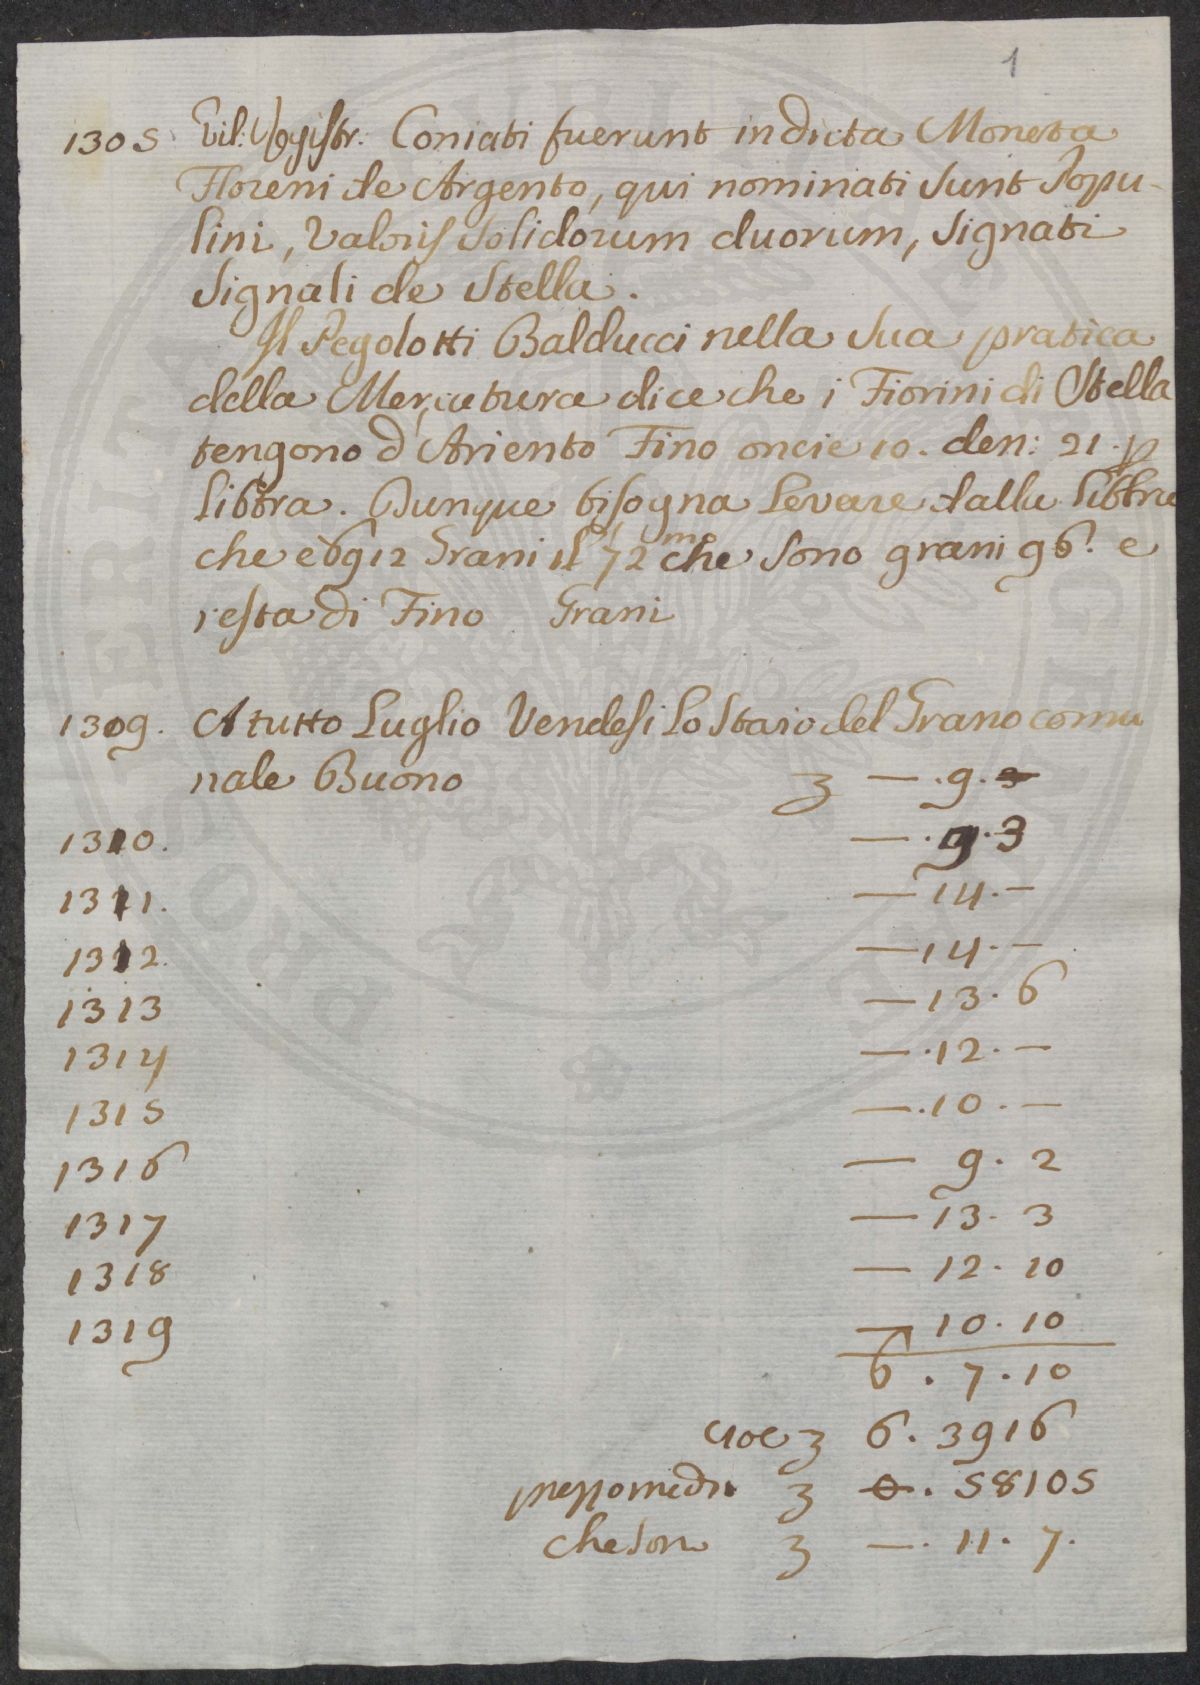 1
1305 Vil: Registr: Coniati fuerunt in dicta Moneta
Floreni de Argento, qui nominati sunt Popu-
lini, Valoris Solidorum duorum, signati
signali de Stella.
Il Pegolotti Balducci nella sua pratica
della Mercatura dice che i Fiorini di Stella
tengono d'Ariento Fino oncie 10. den: 21. p
libbra. Dunque bisogna levare dalla libbra
che è 6912 Grani il 72mo che sono grani 96. e
resta di Fino Grani
1309. A tutto Luglio Vendesi lo Staio del Grano comu
nale Buono — . 9 .
1310. — . 9 . 3
1311. — 14 . —
1312. — 14 . —
1313 — 13 . 6
1314 — . 12 . —
1315 — . 10 . —
1316 — 9 . 2
1317 — 13 . 3
1318 — 12 . 10
1319 — 10 . 10
6 . 7 . 10
cioe 6 . 3916
prezzo medio 0 . 58105
che sono — . 11 . 7 .
PROSPERITAS PUBLICAE